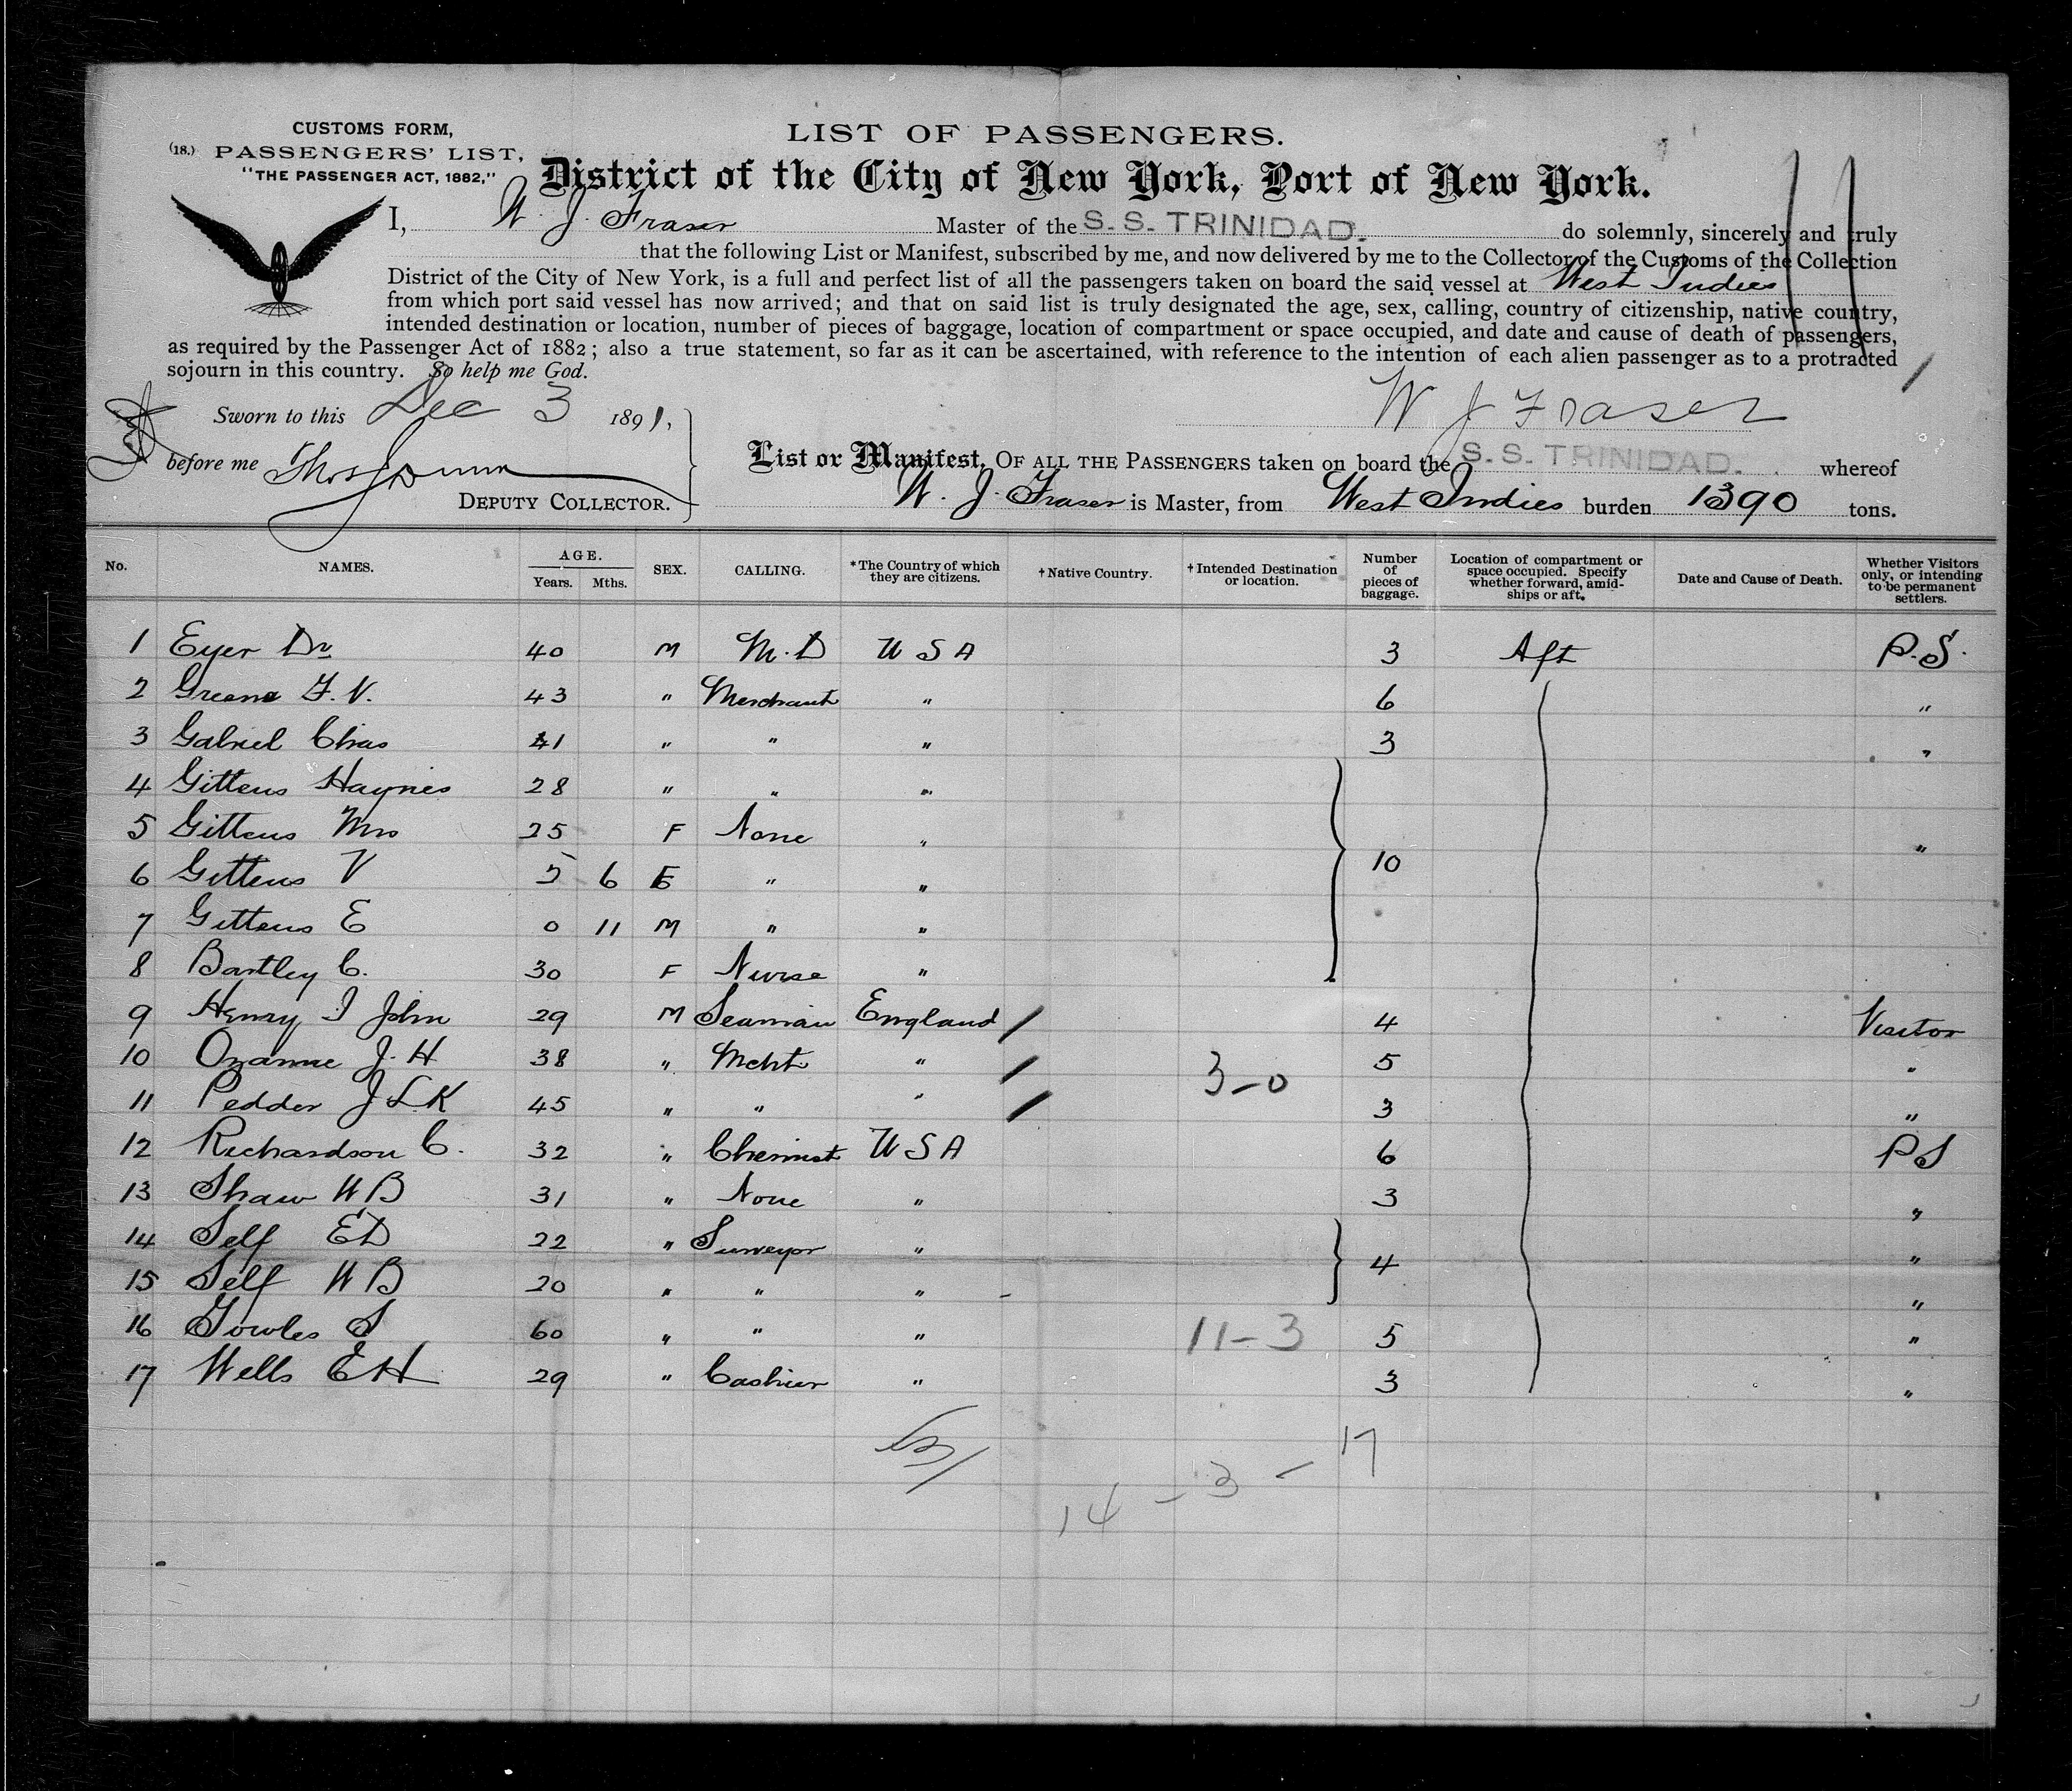 CUSTOMS FORM,
(18.) PASSENGERS' LIST,
"THE PASSENGER ACT, 1882,"
LIST OF PASSENGERS.
District of the City of New York, Port of New York.
I, W. J. Fraser Master of the S.S. TRINIDAD. do solemnly, sincerely and truly
that the following List or Manifest, subscribed by me, and now delivered by me to the Collector of the Customs of the Collection
District of the City of New York, is a full and perfect list of all the passengers taken on board the said vessel at West Indies
from which port said vessel has now arrived; and that on said list is truly designated the age, sex, calling, country of citizenship, native country,
intended destination or location, number of pieces of baggage, location of compartment or space occupied, and date and cause of death of passengers,
as required by the Passenger Act of 1882; also a true statement, so far as it can be ascertained, with reference to the intention of each alien passenger as to a protracted
sojourn in this country. So help me God.
Sworn to this Dec 3 1891,
W J Fraser
before me Thos
DEPUTY COLLECTOR.
List or Manifest, OF ALL THE PASSENGERS taken on board the S.S. TRINIDAD. whereof
W. J. Fraser is Master, from West Indies burden 1390 tons.
No. NAMES. AGE. Years. Mths. SEX. CALLING. *The Country of which they are citizens. †Native Country. †Intended Destination or location. Number of pieces of baggage. Location of compartment or space occupied. Specify whether forward, amidships or aft. Date and Cause of Death. Whether Visitors only, or intending to be permanent settlers.
1 Eyer Dr 40 M M.D USA 3 Aft P.S.
2 Greene F. V. 43 " Merchant " 6 "
3 Gabriel Chas 41 " " " 3 "
4 Gittens Haynes 28 " " "
5 Gittens Mrs 25 F None " "
6 Gittens V 5 6 F " " 10
7 Gittens E 0 11 M " "
8 Bartley C. 30 F Nurse "
9 Henry I John 29 M Seaman England / 4 Visitor
10 Ozanne J. H 38 " Mcht " / 5 "
3-0
11 Pedder J L K 45 " " " / 3 "
12 Richardson C. 32 " Chemist USA 6 PS
13 Shaw W B 31 " None " 3 "
14 Self E D 22 " Surveyor " 4 "
15 Self W B 20 " " " - "
16 Gowles S 60 " " " 11-3 5 "
17 Wells E H 29 " Cashier " 3 "
14 - 3 - 17